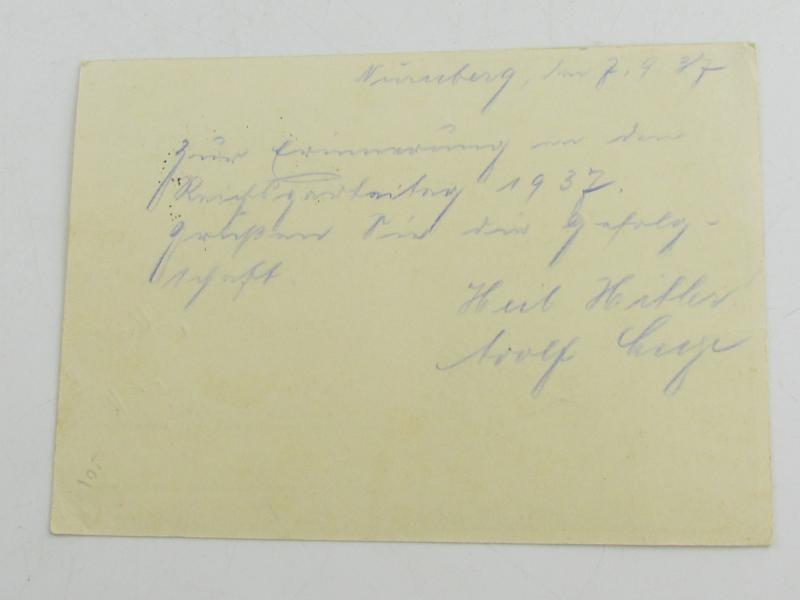 Nürnberg, den 7.9.37
Zur Erinnerung an den
Reichsparteitag 1937.
Grüßen Sie die Gefolg-
schaft.
Heil Hitler!
Adolf
10,-